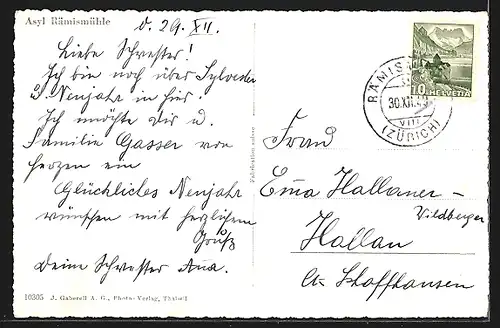 Asyl Rämismühle
d. 29. XII.
Liebe Schwester!
Ich bin noch über Sylvester
u. Neujahr in hier!
Ich möchte Dir u.
Familie Gasser von
herzen ein
Glückliches Neujahr
wünschen mit herzlichem
Gruß
Deine Schwester Ana.
10305 J. Gaberell A. G., Photo-Verlag, Thalwil
HELVETIA
10
RÄMISMÜHLE
30.XII.
VIII
(ZÜRICH)
Frau
Ema Hallauer-
Wildberger
Hallau
Ct. Schaffhausen